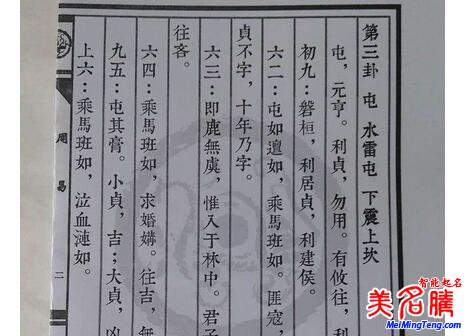 第三卦 屯 水雷屯 下震上坎
屯,元亨。利貞,勿用。有攸往,利
初九:磐桓,利居貞,利建侯。
六二:屯如邅如,乘馬班如。匪寇
貞不字,十年乃字。
六三:即鹿無虞,惟入于林中。君子
往吝。
六四:乘馬班如,求婚媾。往吉,無
九五:屯其膏。小貞,吉;大貞,凶
上六:乘馬班如,泣血漣如。
周易
二
智能起名
美名腾
MeiMingTeng.com